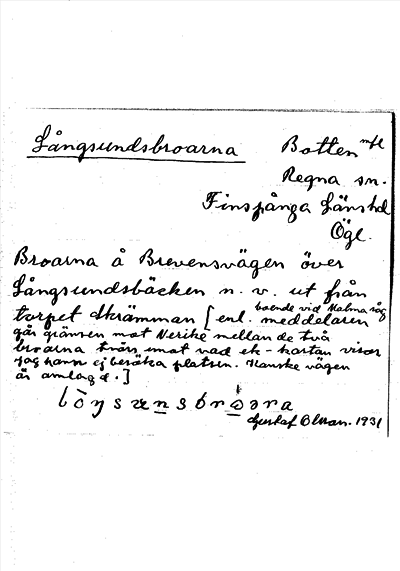 Långsundsbroarna Botten mfl
Regna sn.
Finspånga Länshd
Ögl.
Broarna å Brevensvägen över
Långsundsbäcken n. v. ut från
boende vid Malma såg
torpet Skrämman [enl. meddelaren
går gränsen mot Nerike mellan de två
broarna tvärs emot vad ek-kartan visar
Jag hann ej besöka platsen. Kanske vägen
är omlagd.]
Gustaf 1931